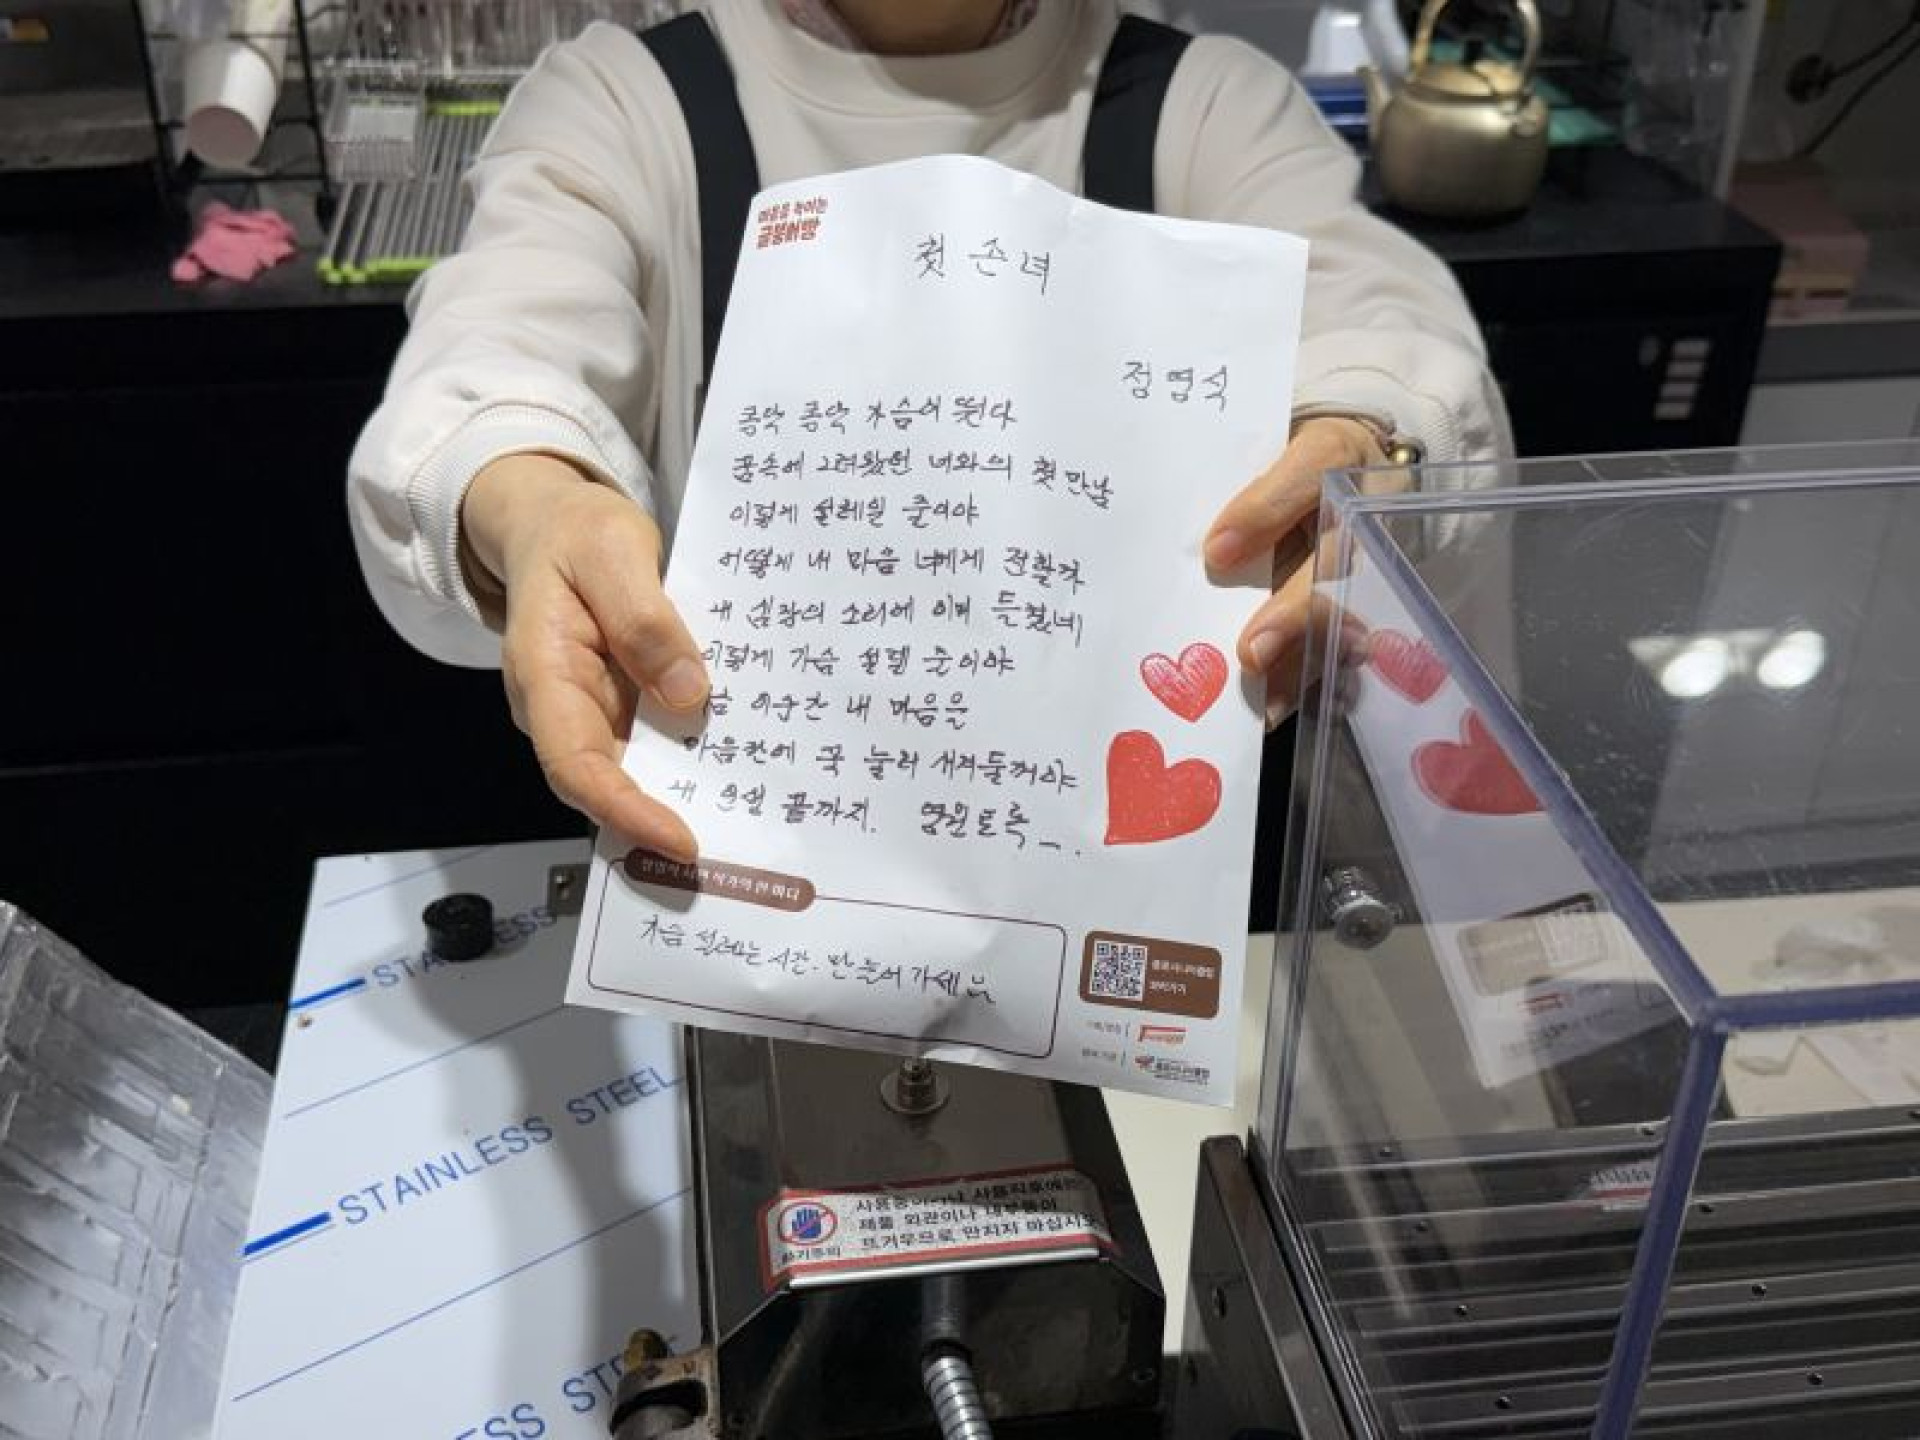 마음을 녹이는
글붕어빵
첫 손녀
정엽식
콩닥 콩닥 가슴이 뛴다
꿈속에 그려왔던 너와의 첫 만남
이렇게 설레일 줄이야
어떻게 내 마음 너에게 전할까
내 심장의 소리에 이미 들켰네
이렇게 가슴 설렐 줄이야
이순간 내 마음을
마음판에 꾹 눌러 새겨둘꺼야
내 인생 끝까지. 영원토록 _ .
작가의 한 마디
가슴 설레는 시간. 만들어 가세요
종로시니어클럽
바로가기
종로시니어클럽
STAINLESS STEEL
STAINLESS STEEL
화기주의
사용중이거나 사용직후에는
제품 외관이나 내부등이
뜨거우므로 만지지 마십시오